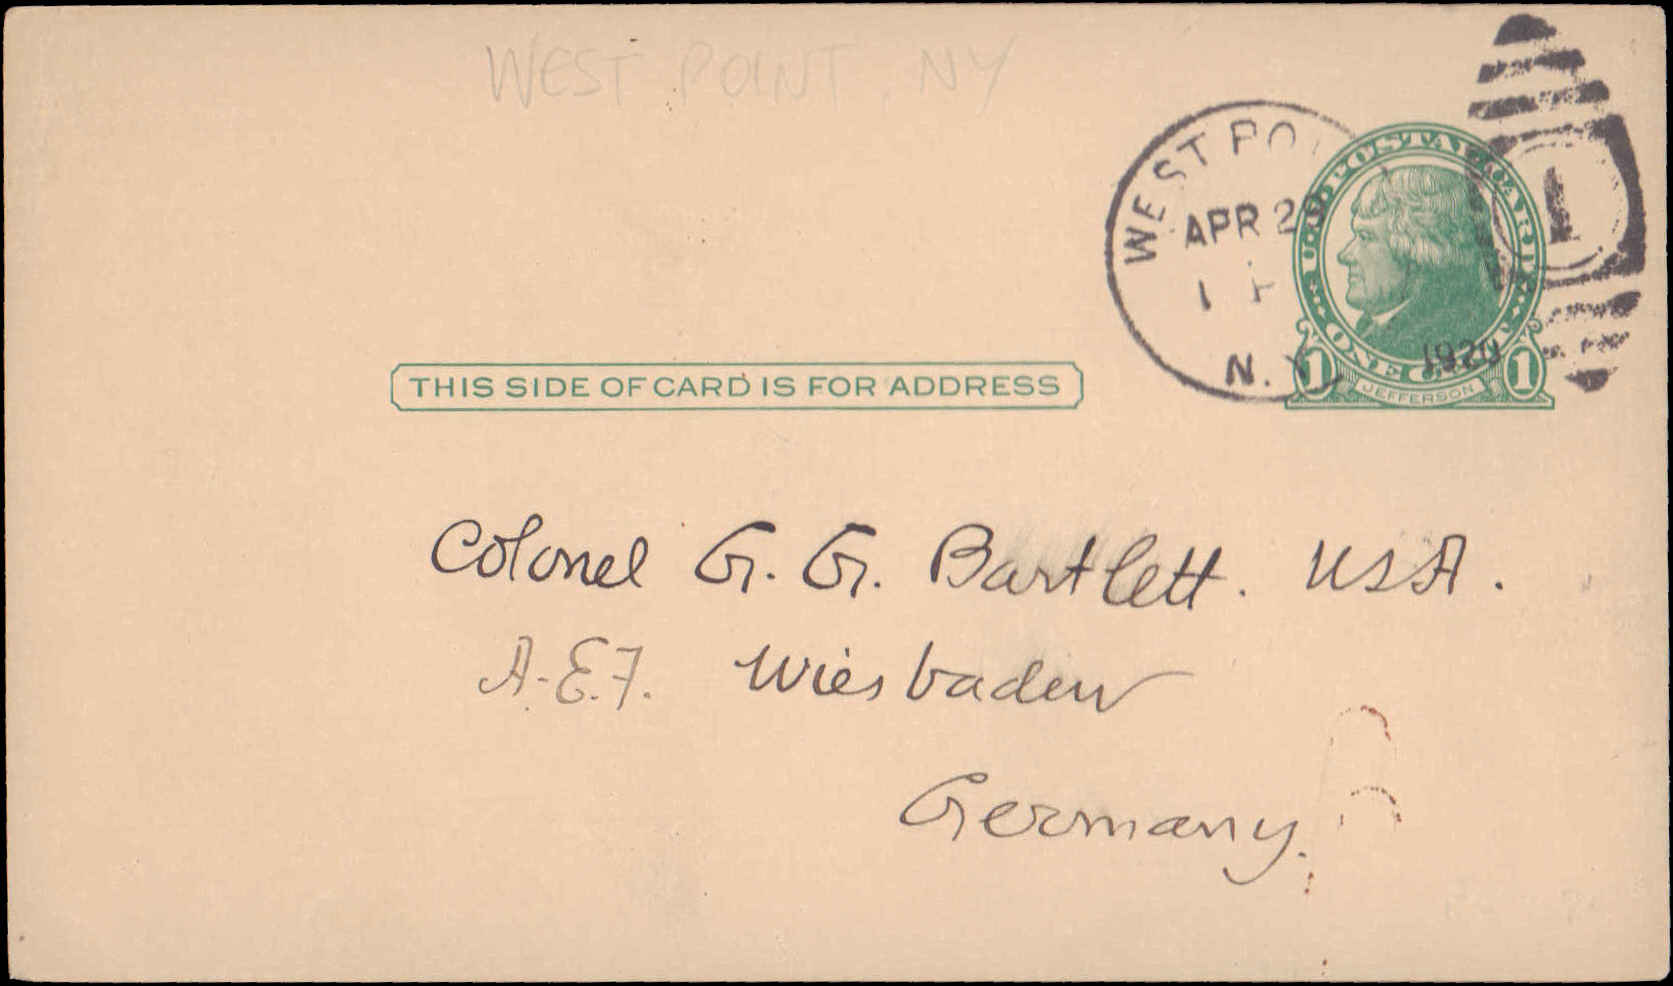 WEST POINT, NY
WEST PO
APR 2
1
N.Y.
1920
U.S. POSTAL CARD
ONE CENT
1 JEFFERSON 1
1
THIS SIDE OF CARD IS FOR ADDRESS
Colonel G. G. Bartlett. USA.
A.E.F. Wiesbaden
Germany.